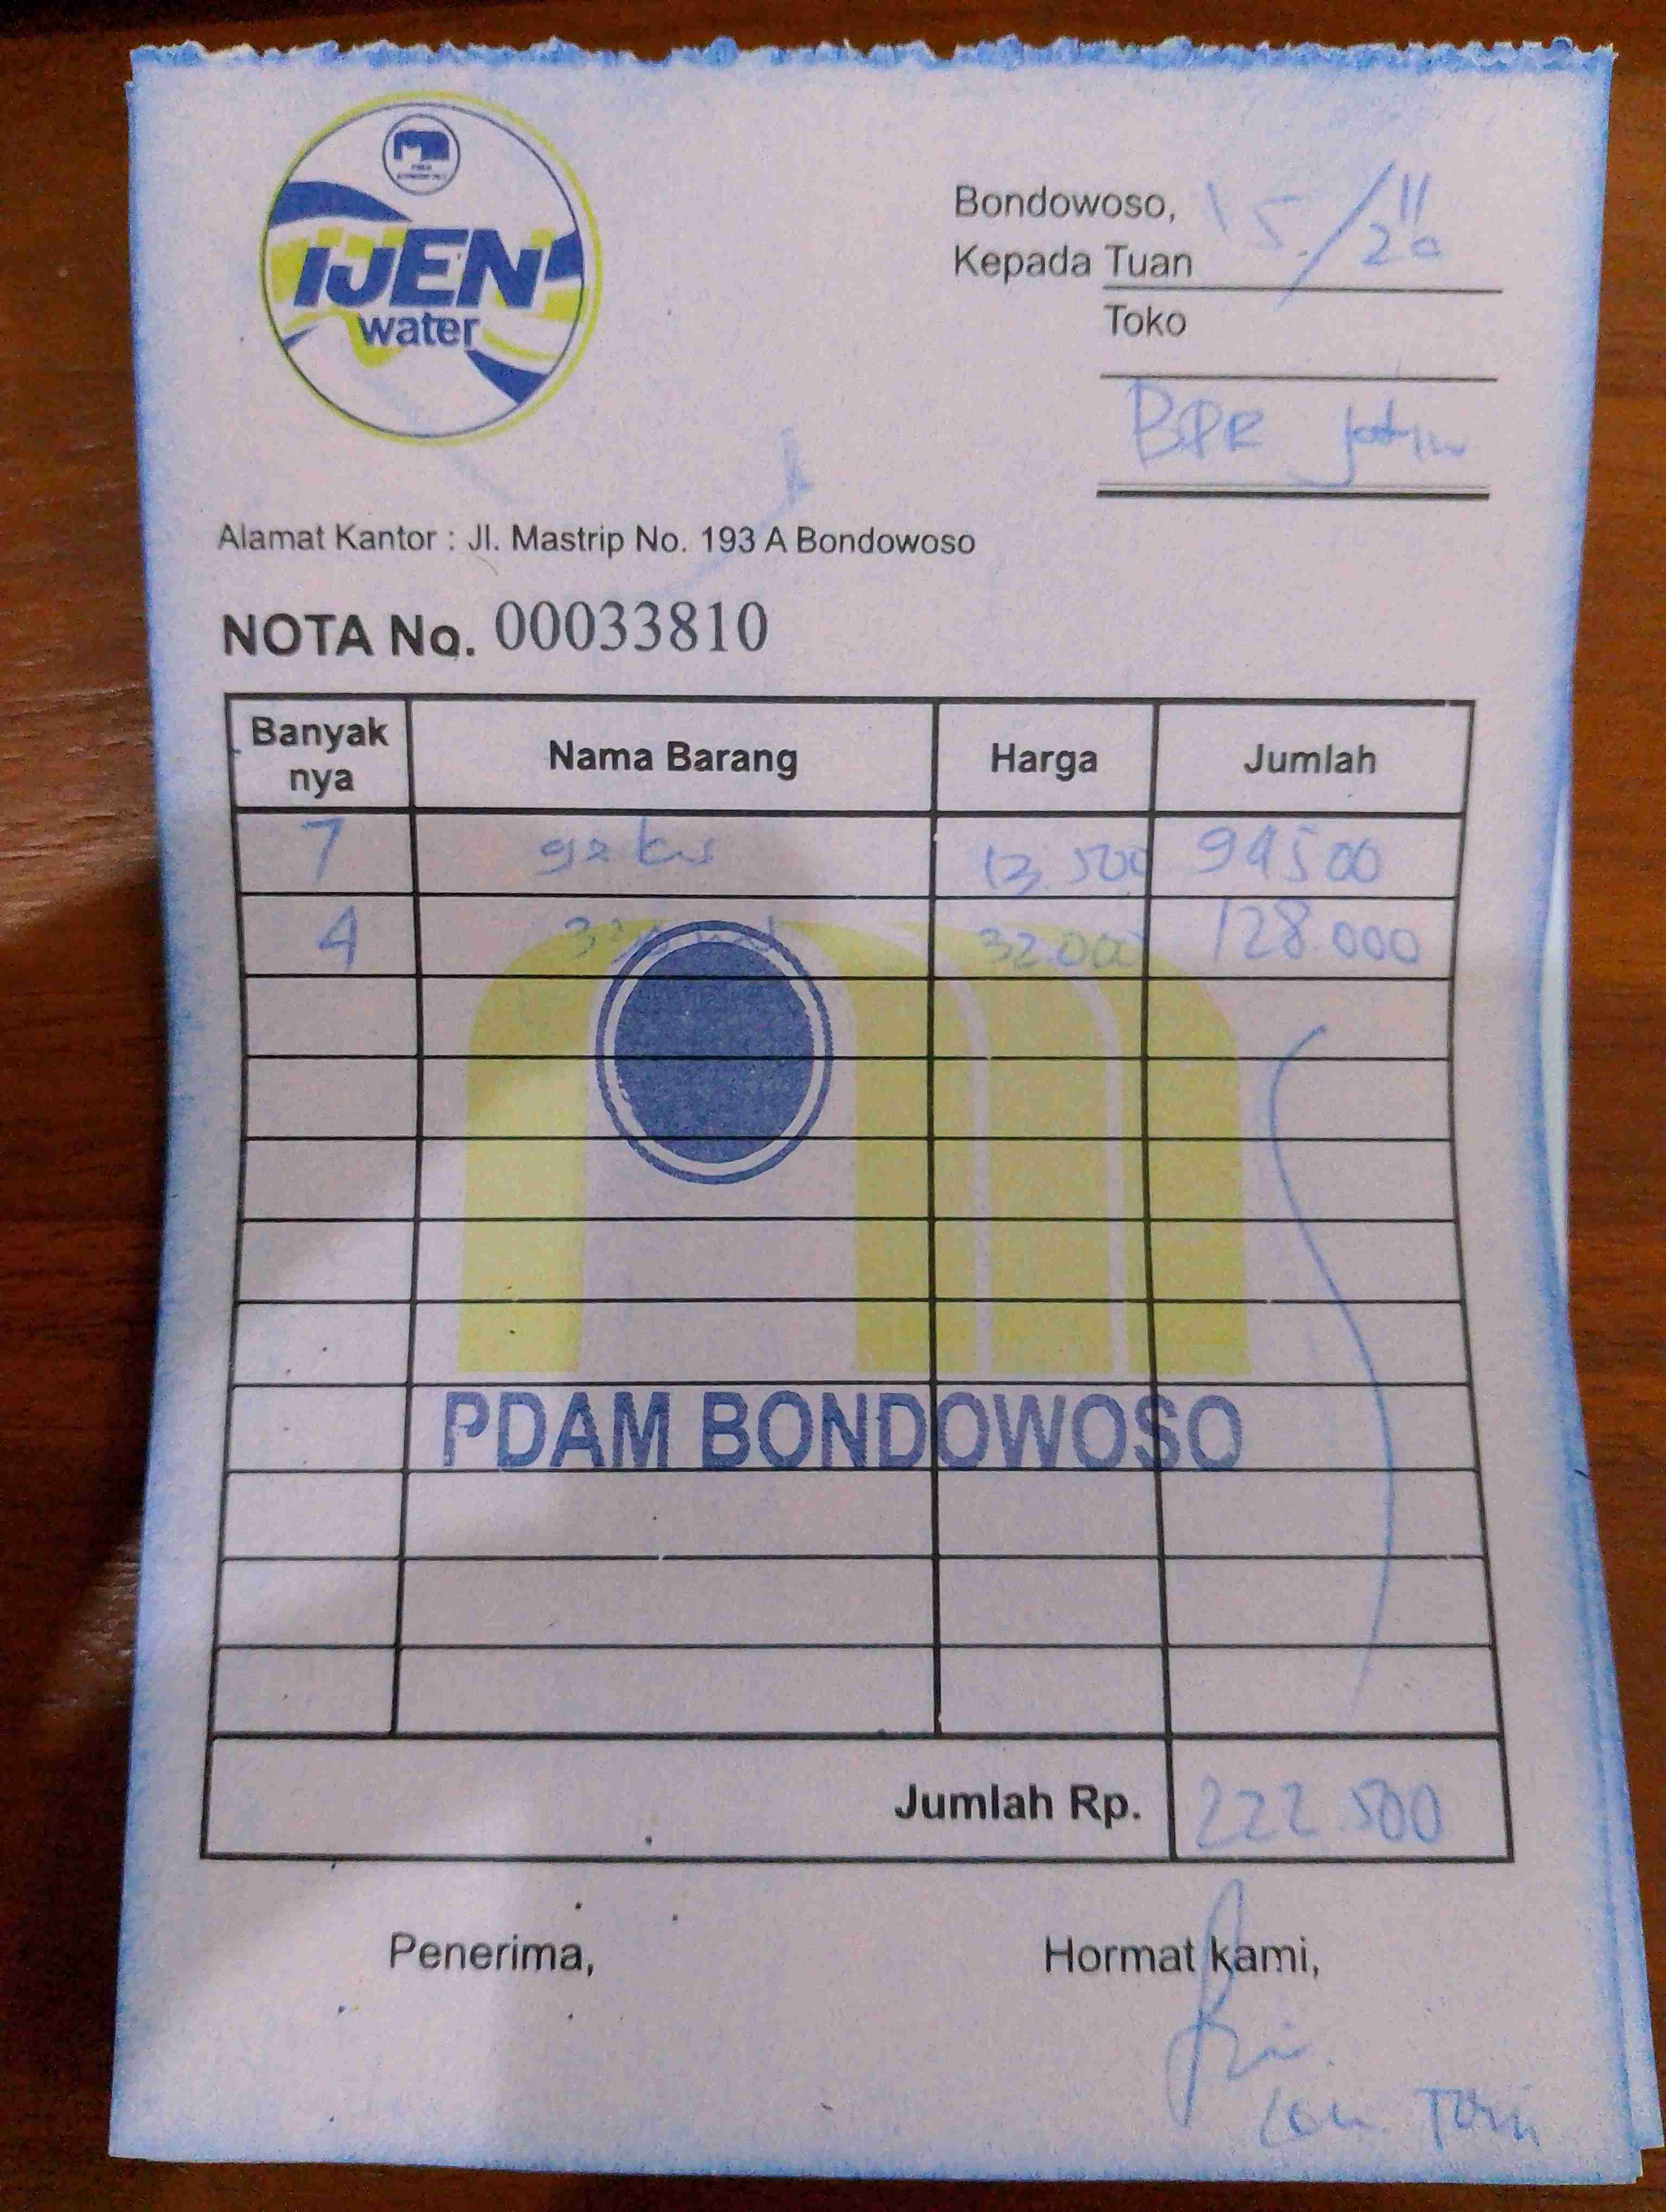 IJEN
water
Bondowoso, 15/11/20
Kepada Tuan
Toko
BPR Jatim
Alamat Kantor : Jl. Mastrip No. 193 A Bondowoso
NOTA No. 00033810
Banyak nya Nama Barang Harga Jumlah
7 12.500 94500
4 32.000 128.000
PDAM BONDOWOSO
Jumlah Rp. 222.500
Penerima, Hormat kami,